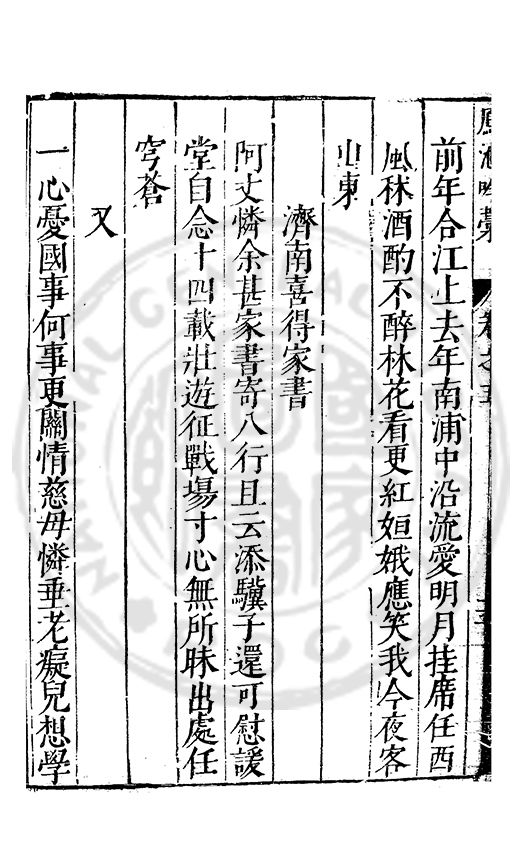 前年合江上去年南浦中沿流愛明月挂席任西
風秫酒酌不醉林花看更紅姮娥應笑我今夜客
山東
濟南喜得家書
阿丈憐余甚家書寄八行且云添驥子還可慰諼
堂自念十四載壯遊征戰場寸心無所昧出處任
穹蒼
又
一心憂國事何事更關情慈母憐垂老癡兒想學